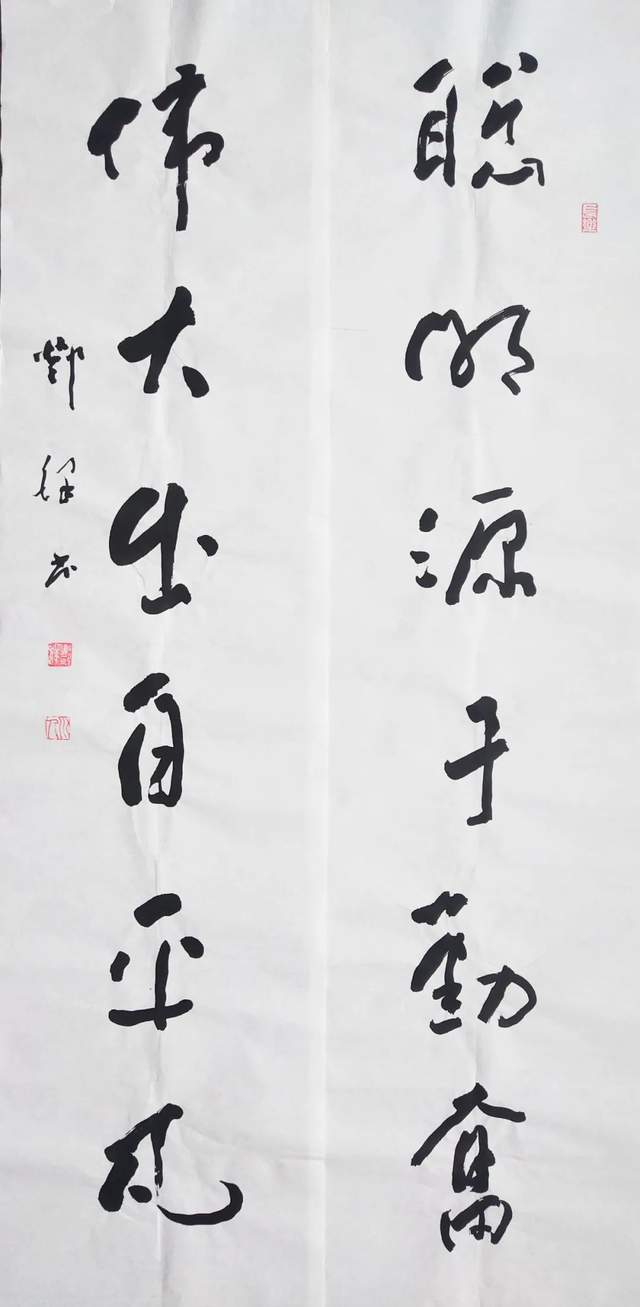 聪明源于勤奋
伟大出自平凡